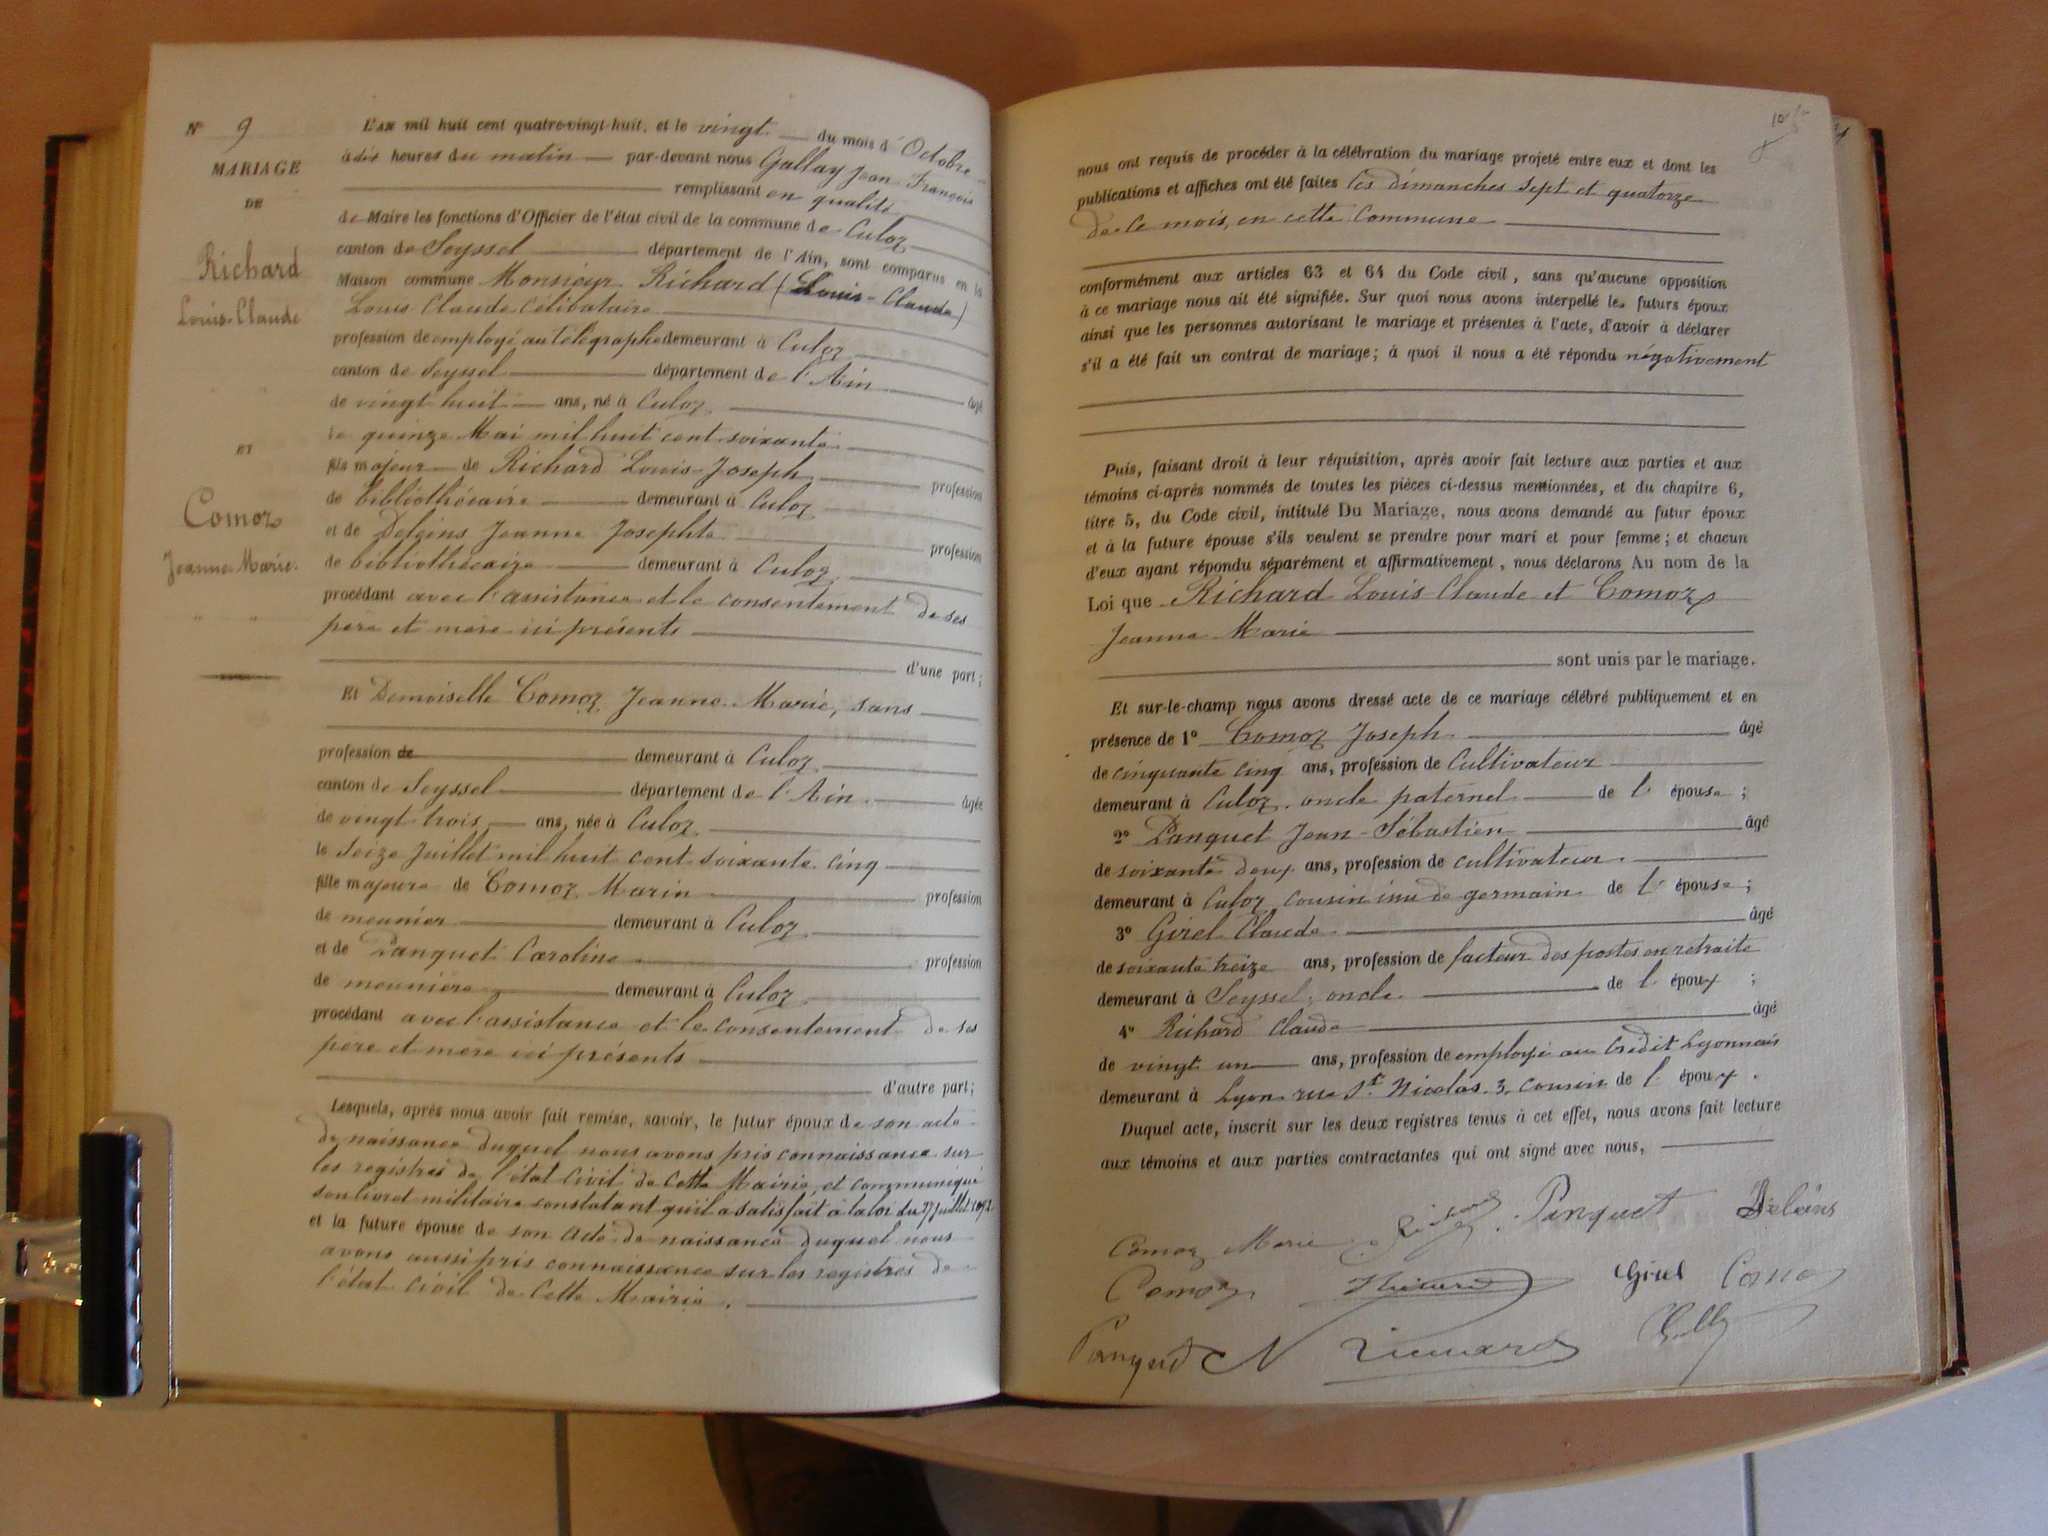 N° 9
MARIAGE
DE
Richard
Louis-Claude
ET
Comoz
Jeanne-Marie.
" "
L'AN mil huit cent quatre-vingt-huit, et le vingt du mois d'Octobre
à dix heures du matin par-devant nous Gallay Jean François
remplissant en qualité
de Maire les fonctions d'Officier de l'état civil de la commune de Culoz
canton de Seyssel département de l'Ain, sont comparus en la
Maison commune Monsieur Richard (Louis-Claude)
Louis Claude Célibataire
profession de employé au télégraphe demeurant à Culoz
canton de Seyssel département de l'Ain âgé
de vingt huit ans, né à Culoz
le quinze Mai mil huit cent soixante
fils majeur de Richard Louis-Joseph profession
de bibliothécaire demeurant à Culoz
et de Deléins Jeanne Josephte profession
de bibliothécaire demeurant à Culoz
procédant avec l'assistance et le consentement de ses
père et mère ici présents
d'une part;
Et Demoiselle Comoz Jeanne-Marie, sans
profession de demeurant à Culoz
canton de Seyssel département de l'Ain âgée
de vingt trois ans, née à Culoz
le Seize Juillet mil huit cent soixante cinq
fille majeure de Comoz Marin profession
de meunier demeurant à Culoz
et de Panquet Caroline profession
de meunière demeurant à Culoz
procédant avec l'assistance et le consentement de ses
père et mère ici présents
d'autre part;
Lesquels, après nous avoir fait remise, savoir, le futur époux de son acte
de naissance duquel nous avons pris connaissance sur
les registres de l'état civil de cette Mairie, et communiqué
son livret militaire constatant qu'il a satisfait à la loi du 27 juillet 1872
et la future épouse de son acte de naissance duquel nous
avons aussi pris connaissance sur les registres de
l'état civil de cette Mairie.
nous ont requis de procéder à la célébration du mariage projeté entre eux et dont les
publications et affiches ont été faites les dimanches sept et quatorze
de ce mois, en cette Commune
conformément aux articles 63 et 64 du Code civil, sans qu'aucune opposition
à ce mariage nous ait été signifiée. Sur quoi nous avons interpellé les futurs époux
ainsi que les personnes autorisant le mariage et présentes à l'acte, d'avoir à déclarer
s'il a été fait un contrat de mariage; à quoi il nous a été répondu négativement
Puis, faisant droit à leur réquisition, après avoir fait lecture aux parties et aux
témoins ci-après nommés de toutes les pièces ci-dessus mentionnées, et du chapitre 6,
titre 5, du Code civil, intitulé Du Mariage, nous avons demandé au futur époux
et à la future épouse s'ils veulent se prendre pour mari et pour femme; et chacun
d'eux ayant répondu séparément et affirmativement, nous déclarons Au nom de la
Loi que Richard Louis Claude et Comoz
Jeanne Marie
sont unis par le mariage.
Et sur-le-champ nous avons dressé acte de ce mariage célébré publiquement et en
présence de 1° Comoz Joseph âgé
de cinquante cinq ans, profession de Cultivateur
demeurant à Culoz, oncle paternel de l'épouse;
2° Panquet Jean-Sébastien âgé
de soixante deux ans, profession de cultivateur
demeurant à Culoz cousin issu de germain de l'épouse;
3° Girel Claude âgé
de soixante treize ans, profession de facteur des postes en retraite
demeurant à Seyssel, oncle de l'époux;
4° Richard Claude âgé
de vingt un ans, profession de employé au Crédit Lyonnais
demeurant à Lyon rue St. Nicolas 3, cousin de l'époux.
Duquel acte, inscrit sur les deux registres tenus à cet effet, nous avons fait lecture
aux témoins et aux parties contractantes qui ont signé avec nous,
Comoz Marie Richard Panquet Deléins
Comoz Richard Girel Comoz
Panquet Richard